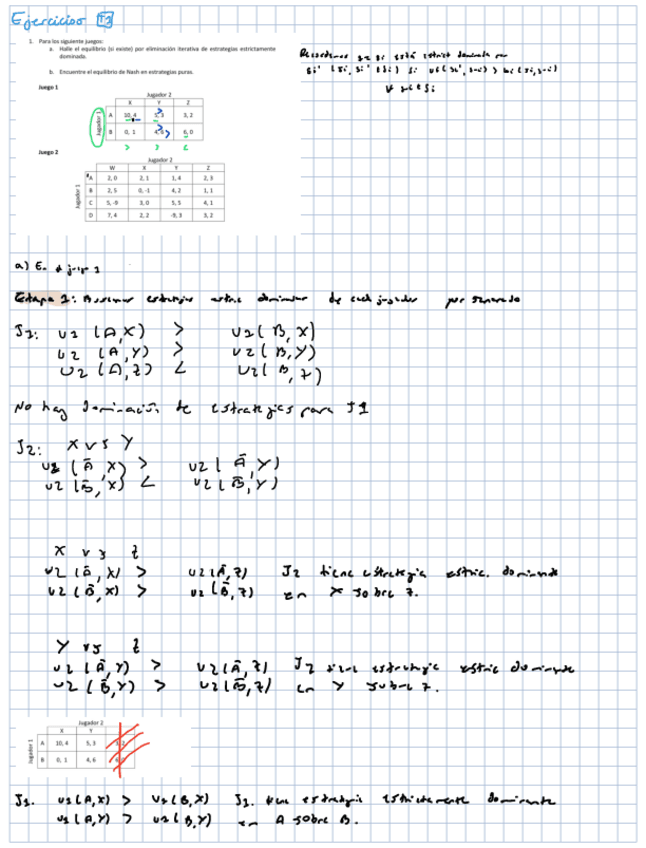 Ejercicios T3
1. Para los siguientes juegos:
a. Halle el equilibrio (si existe) por eliminación iterativa de estrategias estrictamente
dominada.
b. Encuentre el equilibrio de Nash en estrategias puras.
Juego 1
Jugador 2
X Y Z
Jugador 1
A 10, 4 5, 3 3, 2
B 0, 1 4, 6 6, 0
Juego 2
Jugador 2
W X Y Z
Jugador 1
A 2, 0 2, 1 1, 4 2, 3
B 2, 5 0, -1 4, 2 1, 1
C 5, -9 3, 0 5, 5 4, 1
D 7, 4 2, 2 -9, 3 3, 2
a) En juego 1
Etapa 1: Buscamos estrategias estric dominadas de cada jugador por separado
J1: u1 (A,X) > u1 (B,X)
u2 (A,Y) > u2 (B,Y)
u2 (A,Z) < u2 (B,Z)
No hay dominación de estrategias para J1
J2: X vs Y
u2 (A,X) > u2 (A,Y)
u2 (B,X) < u2 (B,Y)
X vs Z
u2 (A,X) > u2 (A,Z) J2 tiene estrategia estric. dominante
u2 (B,X) > u2 (B,Z) en X sobre Z.
Y vs Z
u2 (A,Y) > u2 (A,Z) J2 tiene estrategia estric dominante
u2 (B,Y) > u2 (B,Z) en Y sobre Z.
Jugador 2
X Y
Jugador 1
A 10, 4 5, 3
B 0, 1 4, 6
J1. u1 (A,X) > u1 (B,X) J1. tiene estrategia estrictamente dominante
u1 (A,Y) > u1 (B,Y) en A sobre B.